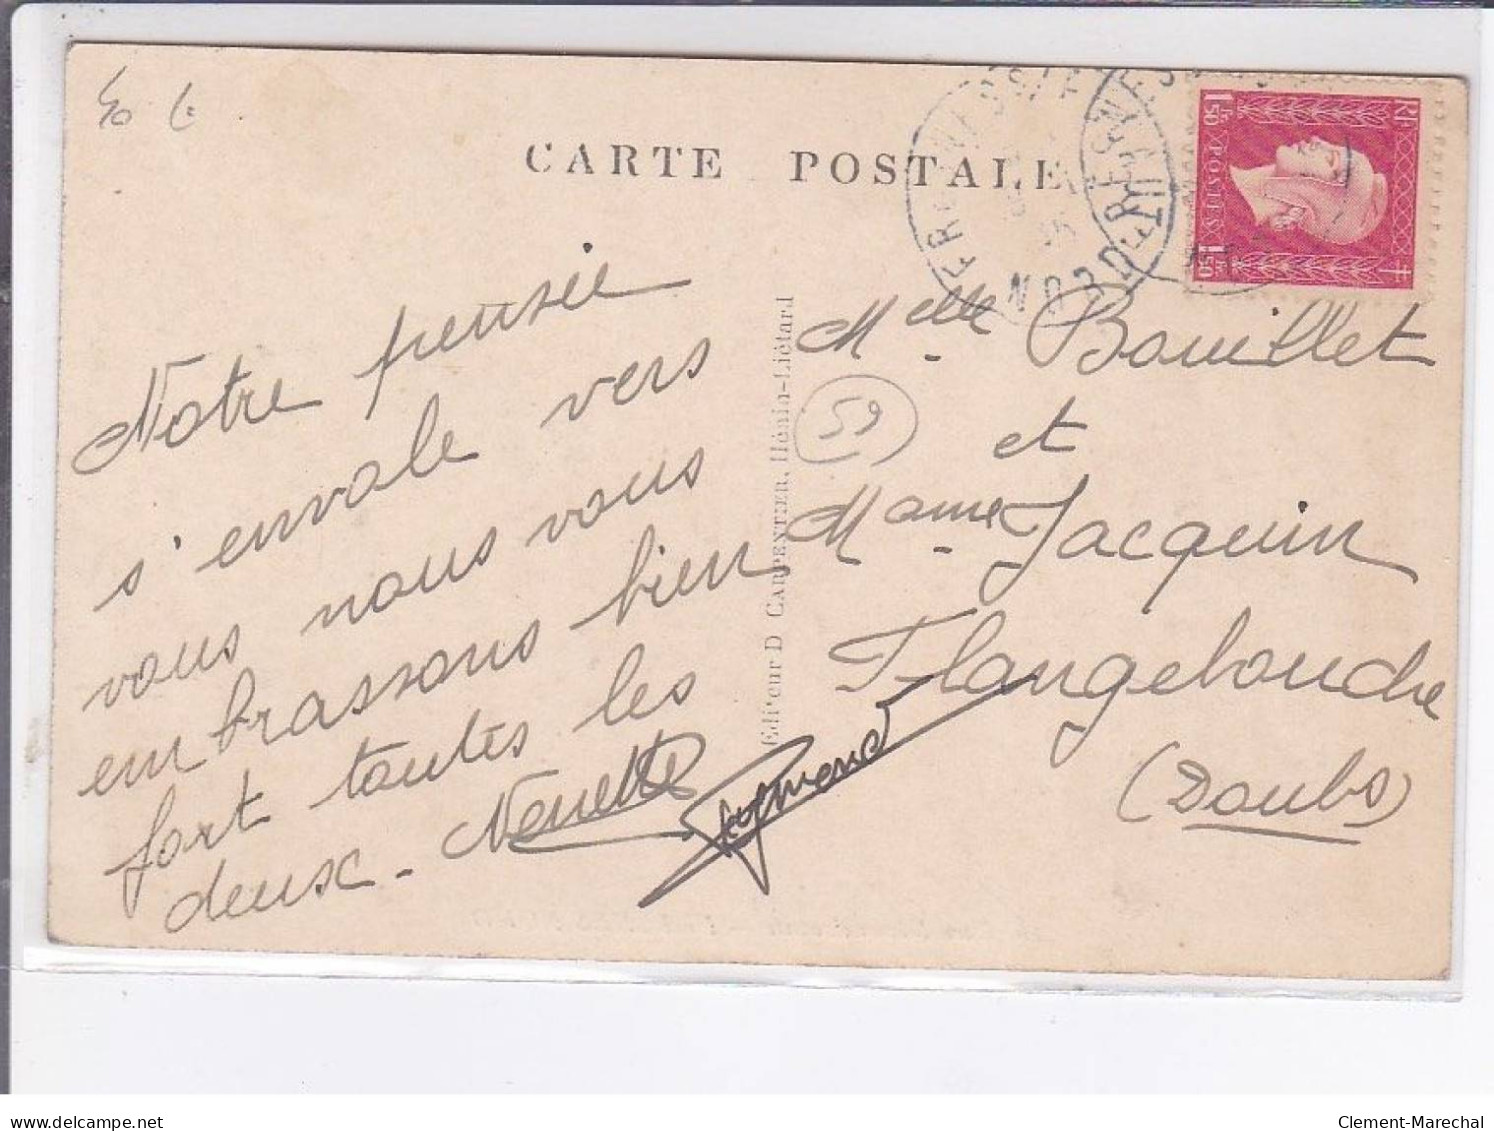 40 €
CARTE POSTALE
FRESNES S/E
NORD
FRESNES
1F50 POSTES 1F50
RF
Notre pensée
s'envole vers
vous nous vous
embrassons bien
fort toutes les
deux - Nenette
Raymond
Editeur D CARPENTIER, Hénin-Liétard
59
Melle Bouillet
et
Mame Jacquin
Flangebouche
(Doubs)
delcampe.net
Clement-Marechal